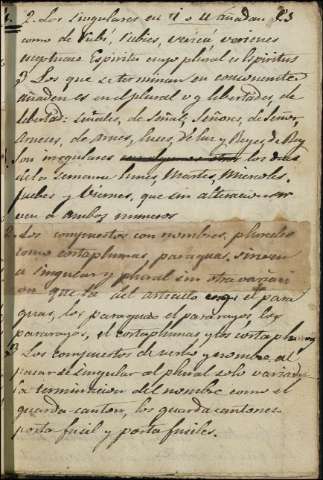 2. Los singulares en í o ú añadan es
como de rubí, rubíes, varía varienes
exeptuase Espiritu cuyo plural es Espiritus
3 Los que se terminan en consonante
añaden es en el plural v g libertades, de
libertad: señales, de señal, señores, de señor,
Arneces, de Arnes, luces, de luz y Reyes, de Rey
son irregulares los dias
de la semana lunes, Martes, Miercoles,
Juebes y Viernes, que sin alteracion sir
ven a ambos numeros
2. Los compuestos con nombres plurales
como cortaplumas, paraguas, sirven
a singular y plural sin otra variaci
on que la del articulo el para
guas, los paraguas el pararayos, los
pararayos, el cortaplumas y los cortaplumas
3. Los compuestos de verbo y nombre al
pasar de singular al plural solo varian
la terminacion del nombre como el
guarda canton, los guarda cantones
porta fucil y porta fuciles.